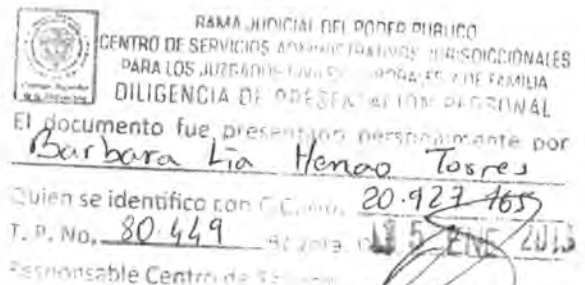 RAMA JUDICIAL DEL PODER PUBLICO
CENTRO DE SERVICIOS ADMINISTRATIVOS JURISDICCIONALES
PARA LOS JUZGADOS CIVILES LABORALES Y DE FAMILIA
DILIGENCIA DE PRESENTACION PERSONAL
El documento fue presentado personalmente por
Barbara Lia Henao Torres
Quien se identifico con C.C. No. 20.927.165
T. P. No. 80.449 Bogota, 15 ENE 201
Responsable Centro de